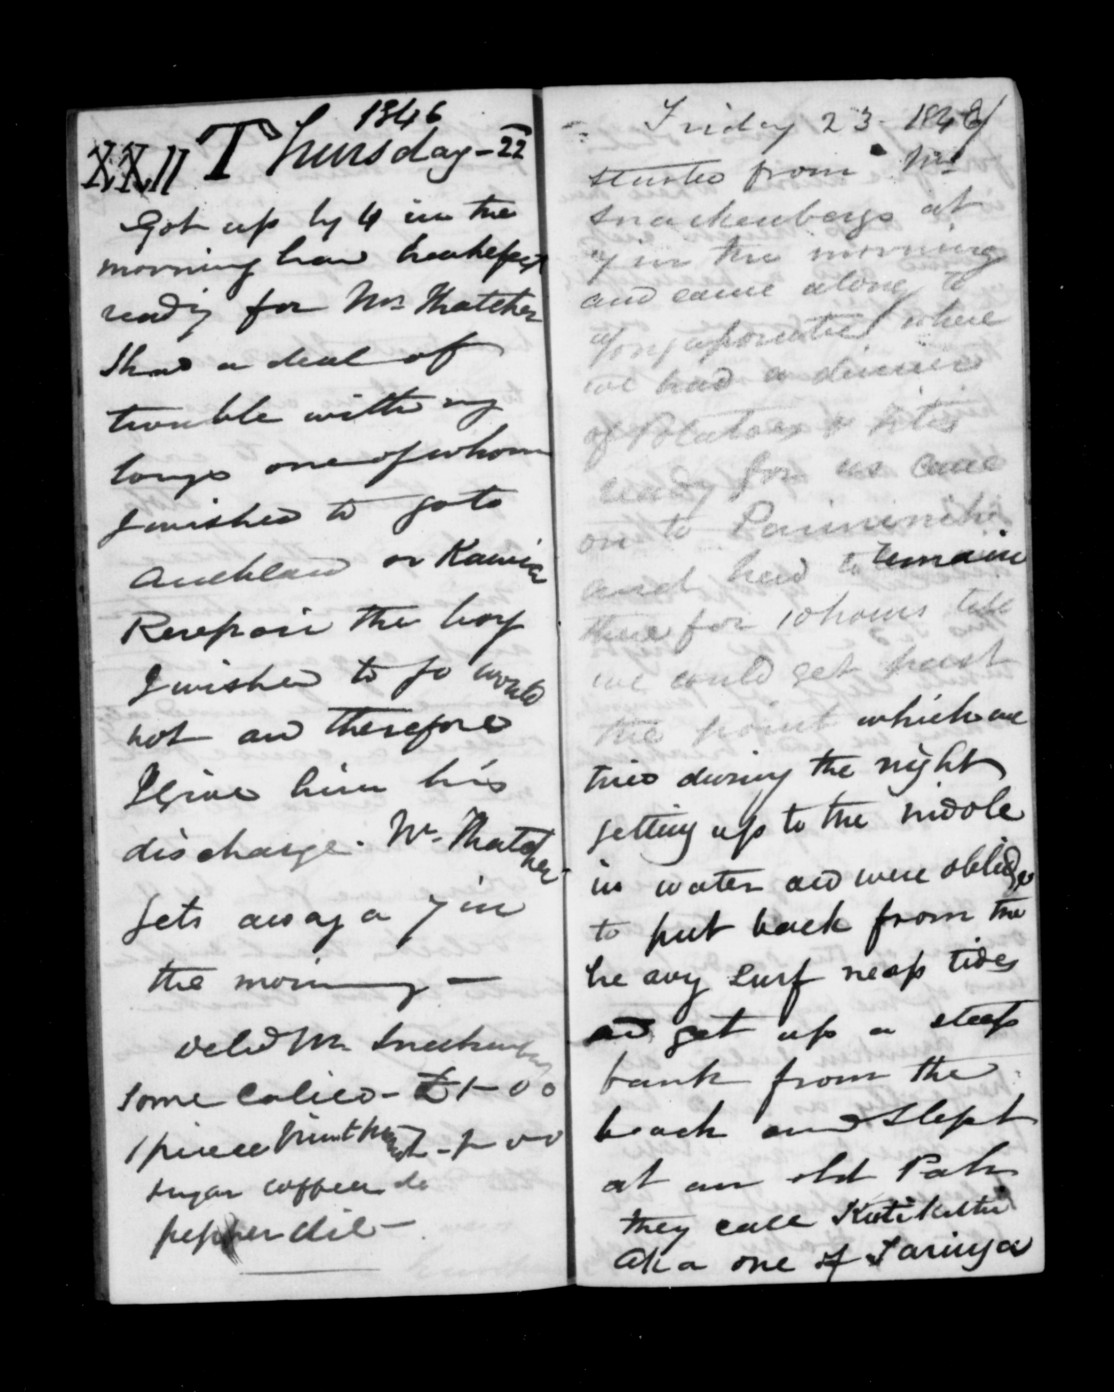 1846
XXII Thursday - 22
Got up by 4 in the
morning have breakfast
ready for Mr Thatcher
I had a deal of
trouble with my
longs one of whom
I wished to go to
Aucklan or Kawia
the boy
I wished to go would
not and therefore
I give him his
discharge. Mr Thatcher
gets away a 7 in
the morning —
Mr
some Calico - £1-0 0
1 piece
sugar coffee do
pepper
Friday 23 - 1846
started from Mr
Snackenbergs at
7 in the morning
and came along to
where
we had a dinner
of Potatoes &
ready for us came
on to
and had to remain
there for 10 hours till
we could get past
the point which we
tried during the night
getting up to the midole
in water and were oblidged
to put back from the
heavy surf neap tides
and get up a steep
bank from the
beach and slept
at an old Pah
they call
Aka one of